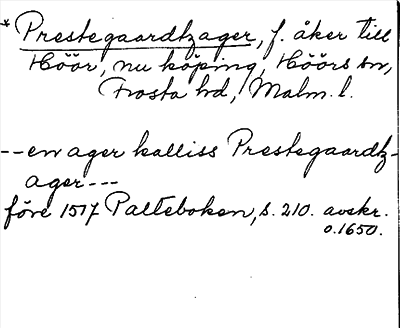 * Prestegaardtzager, f. åker till
Höör, nu köping, Höörs sn,
Frosta hd, Malm. l.
--en ager kalliss Prestegaardtz-
ager---
före 1517 Palteboken, s. 210. avskr.
o. 1650.